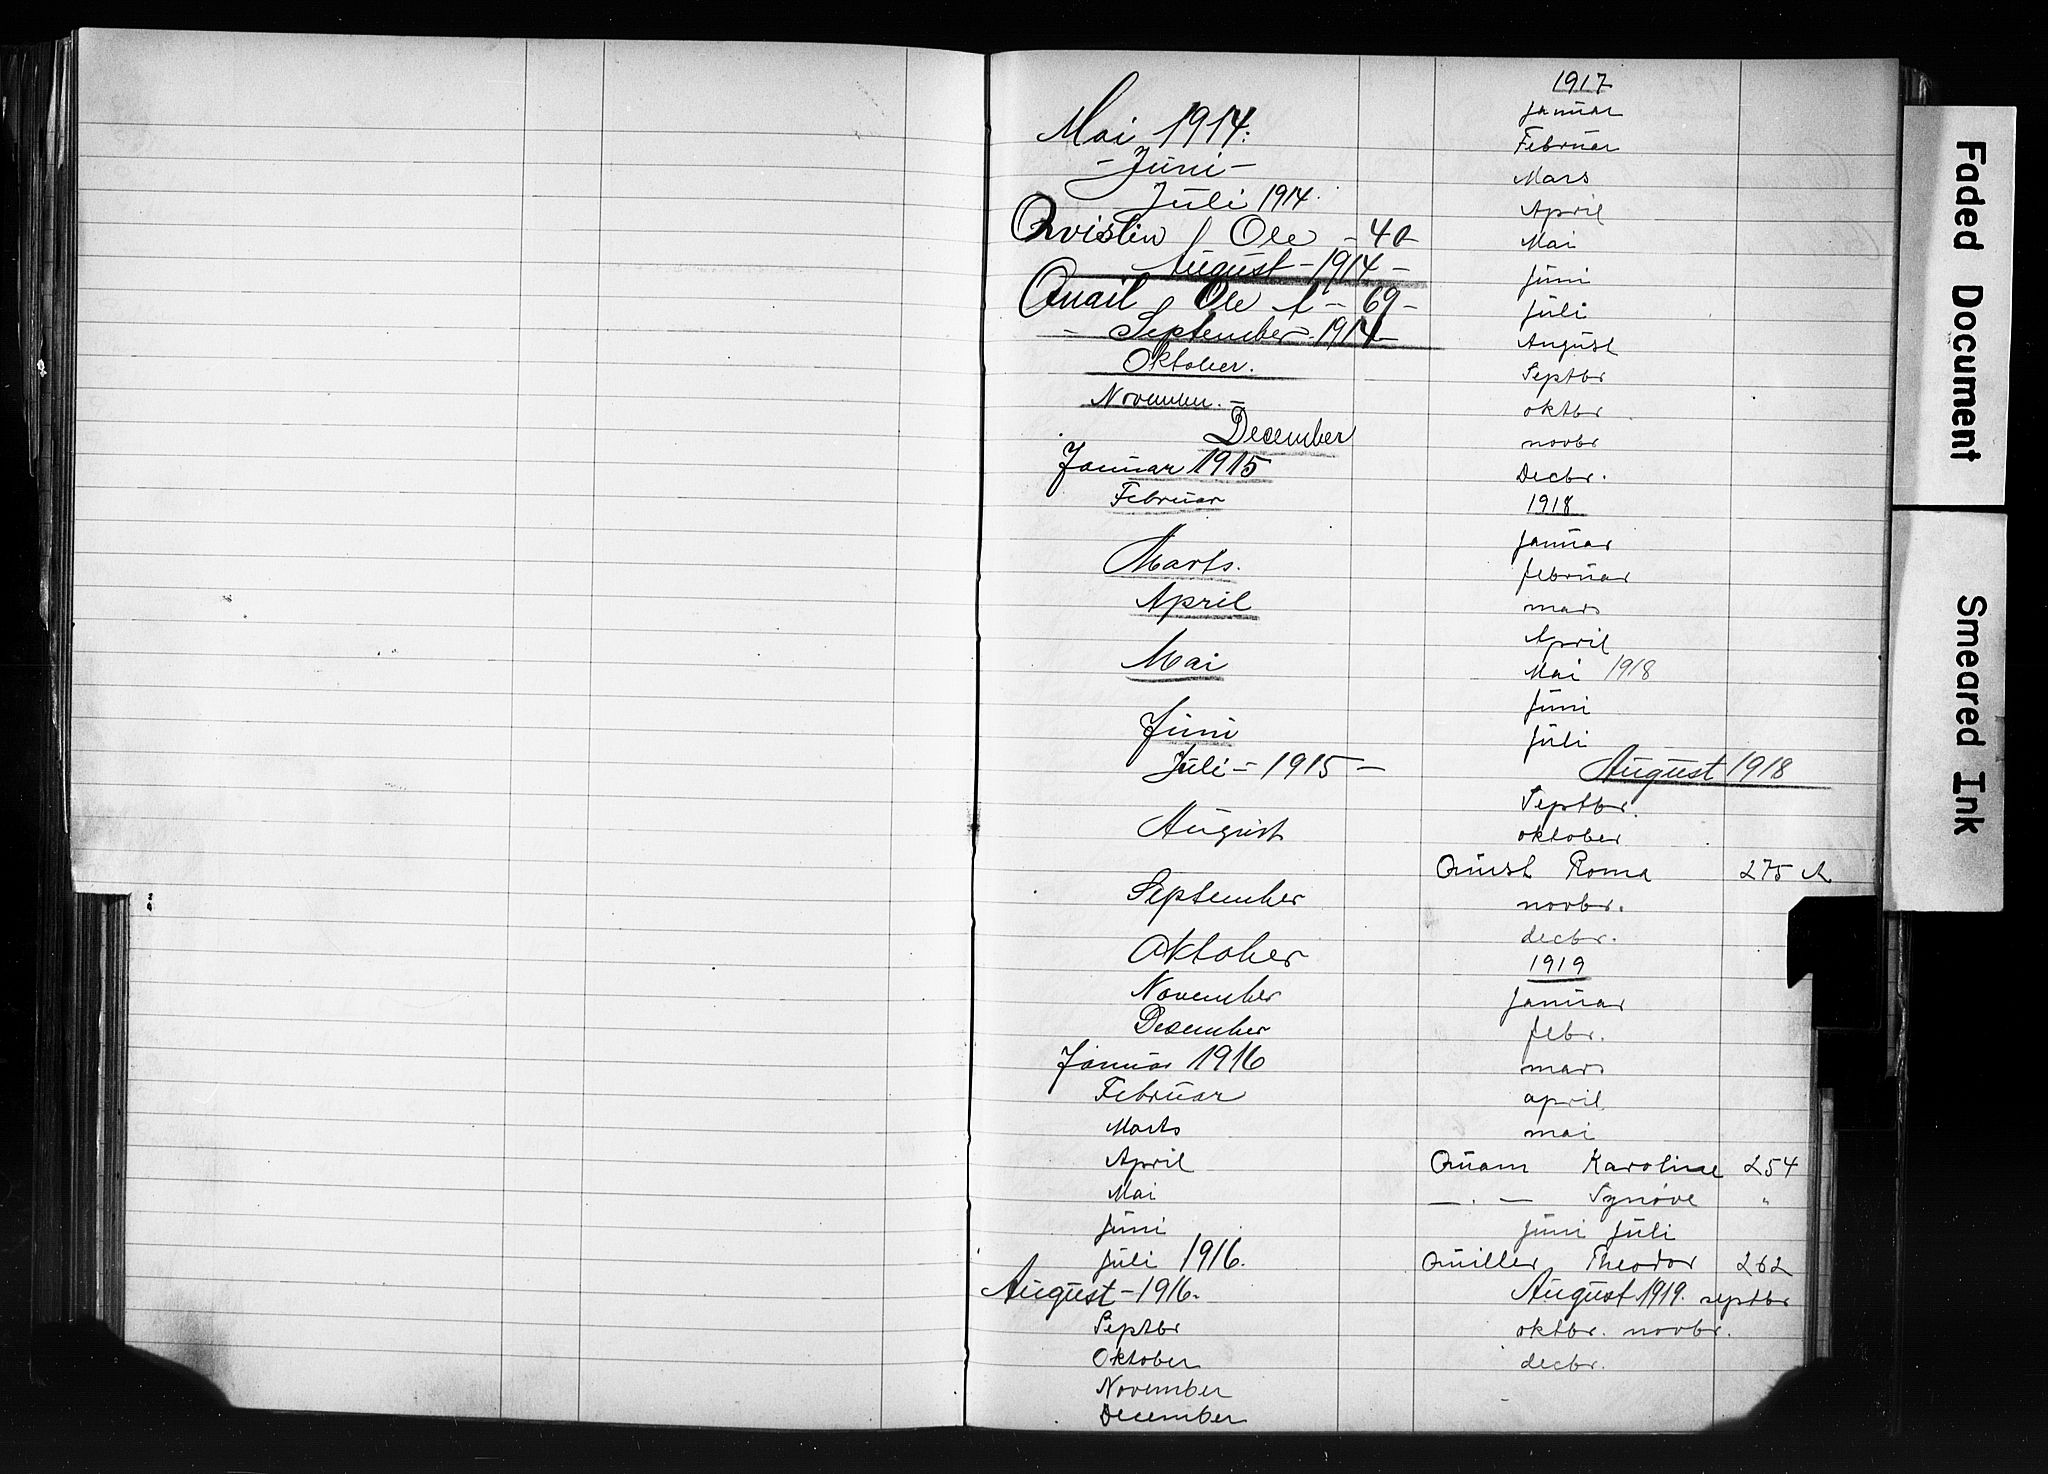 Mai 1914.
- Juni -
Juli 1914.
Qvistin, Ole - 40 -
August - 1914 -
Quail, Ole A - 69 -
- September - 1914 -
Oktober.
November. -
December
Januar 1915
Februar
Marts.
April
Mai
Juni
Juli - 1915 -
August
September
Oktober
November
December
Januar 1916
Februar
Marts
April
Mai
Juni
Juli 1916.
August - 1916.
Septbr
Oktober
November
December
1917
Januar
Februar
Mars
April
Mai
Juni
Juli
August
Septbr
oktbr
novbr
Decbr.
1918
Januar
februar
mars
April
Mai 1918
Juni
Juli
August 1918
Septbr.
oktober
Quist Roma 275 A
novbr.
decbr.
1919
Januar
febr.
mars
april
mai
Quam Karoline 254
— . — Synøve "
Juni Juli
Quiller Theodor 262
August 1919. septbr
oktbr. novbr.
decbr.
Faded Document
Smeared Ink